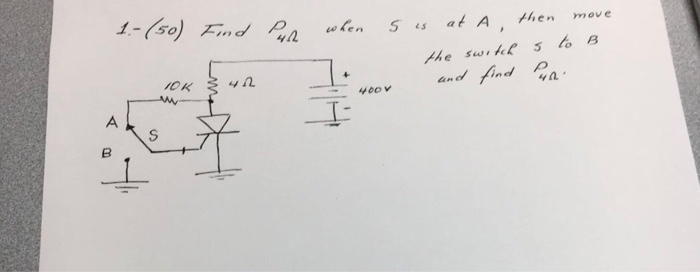 1.- (50) Find P4Ω when S is at A, then move
the switch s to B
and find P4Ω.
10K
4Ω
+
400V
-
A
S
B